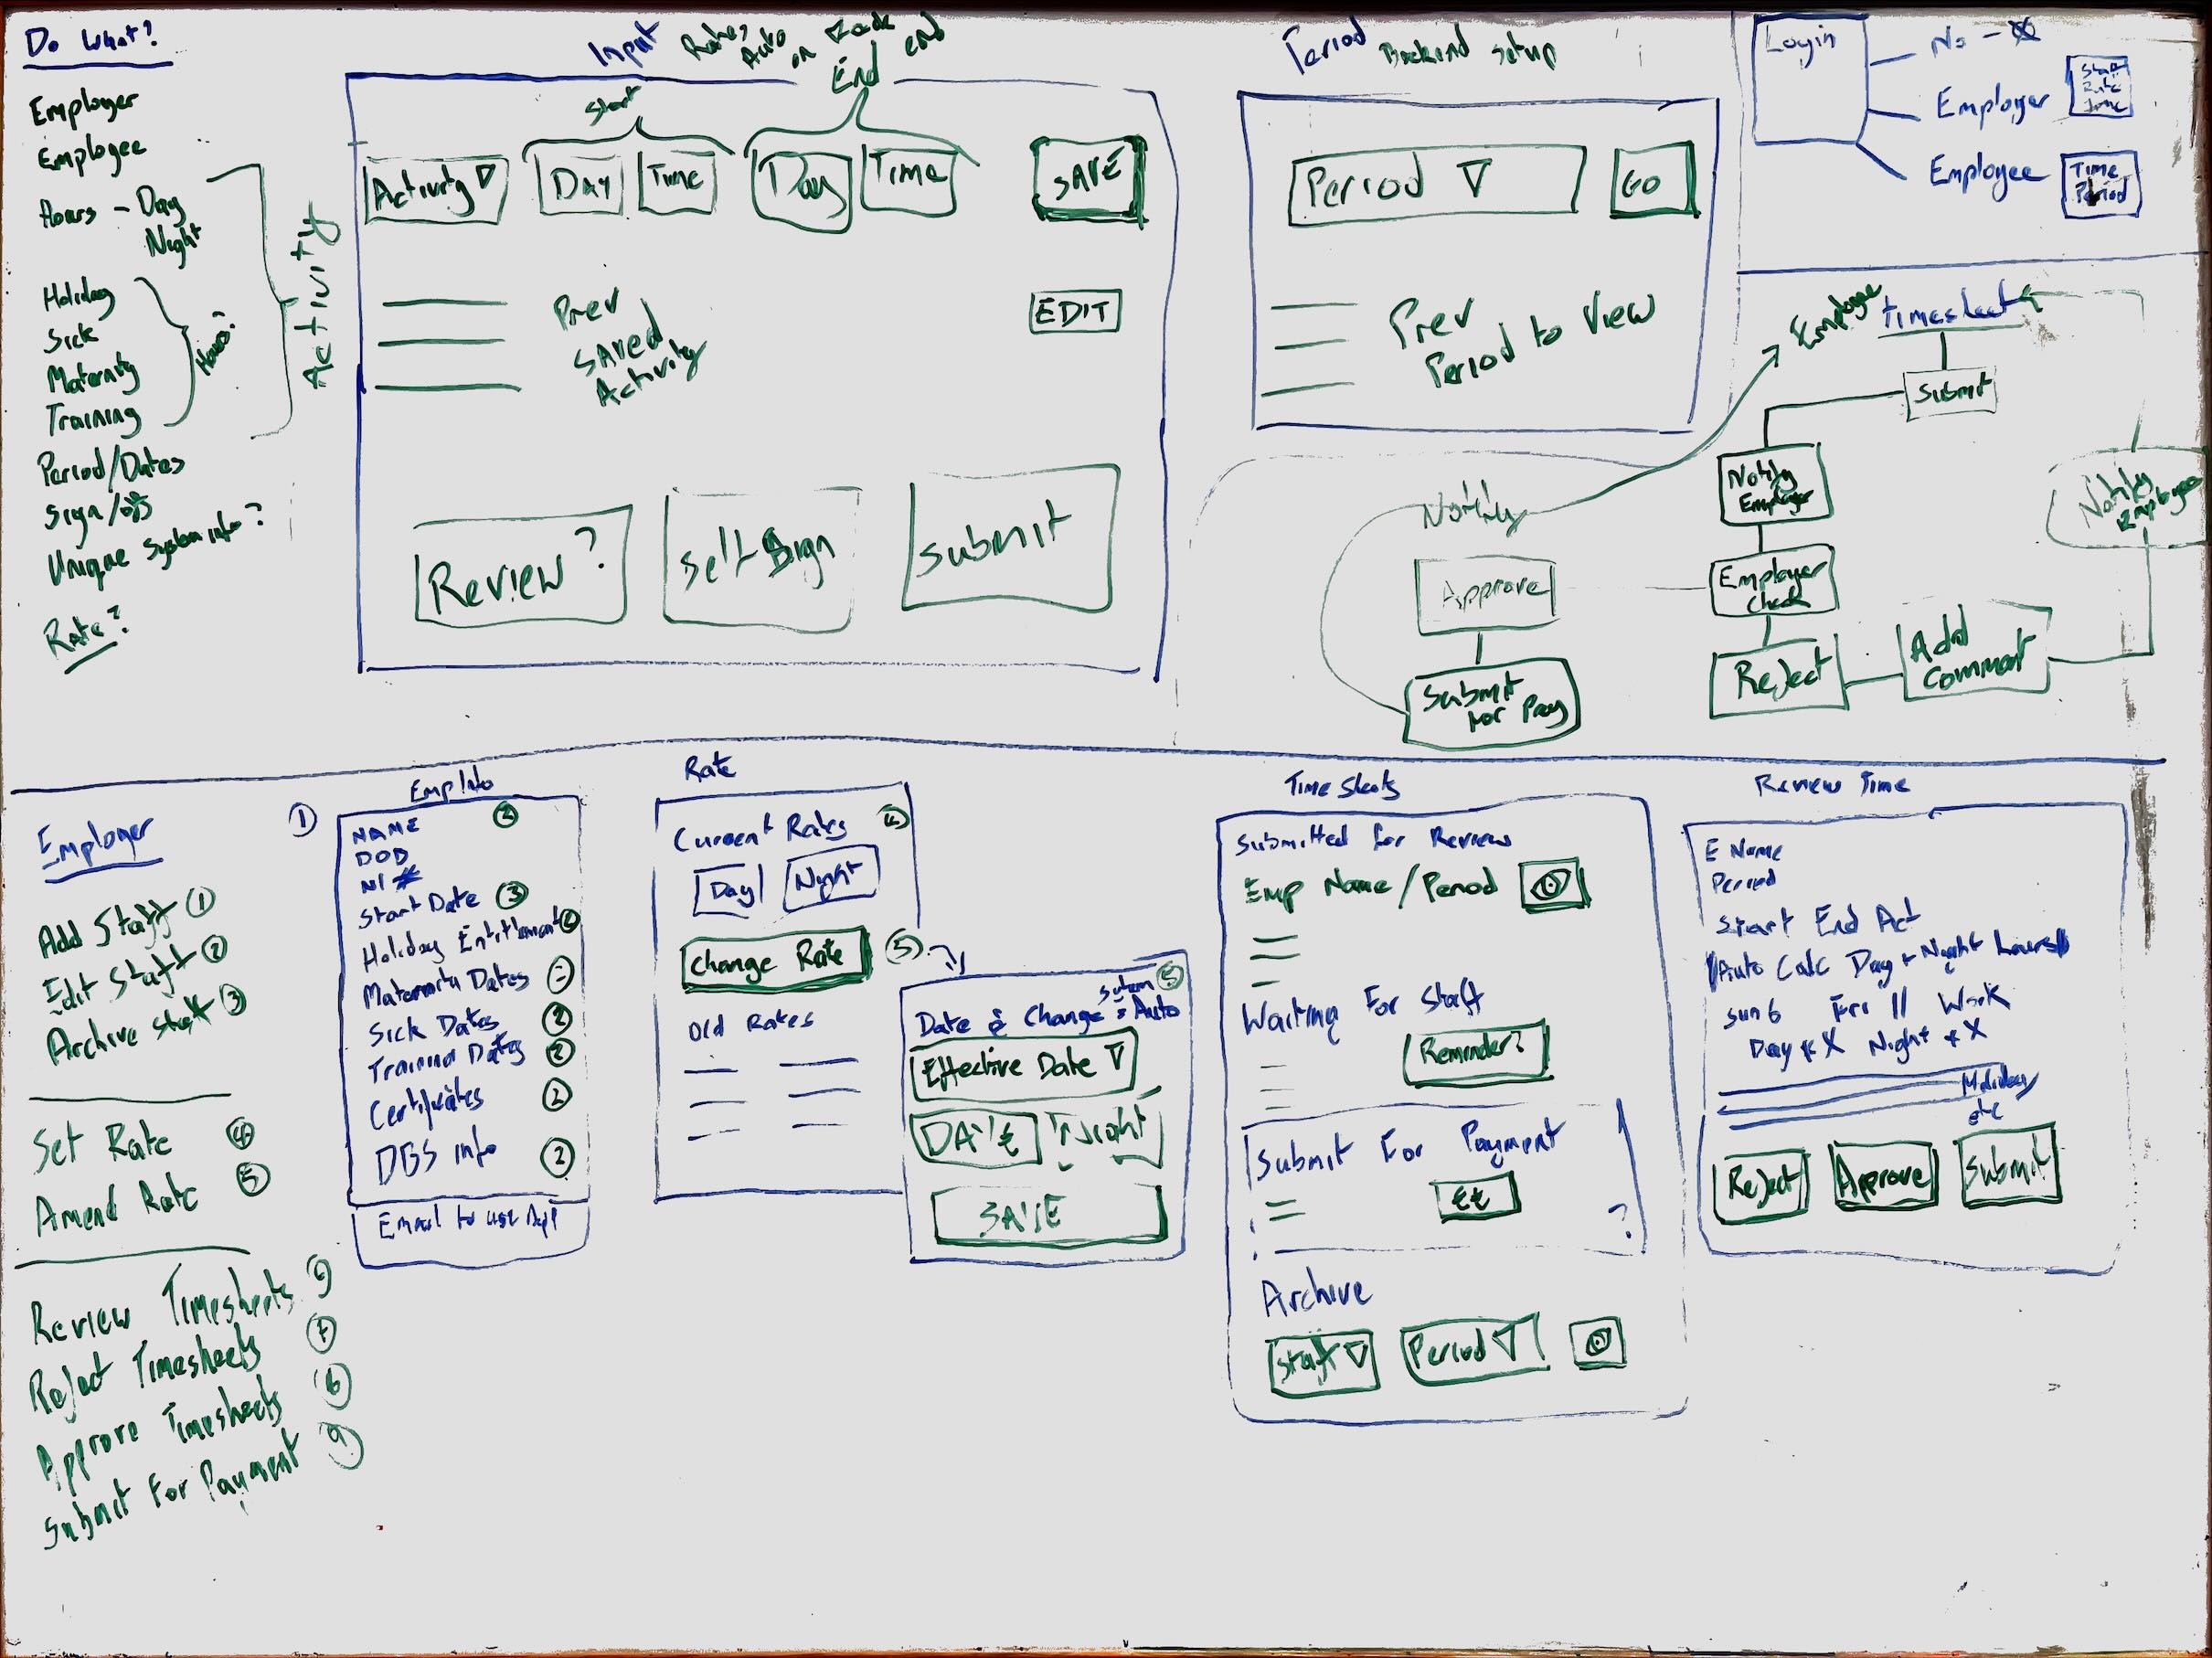 Do What?
Employer
Employee
Hours - Day
Night
Holiday
Sick
Maternity
Training
Hours?
Activity
Period/Dates
Sign/off
Unique System info?
Rate?
Input
Rates
Auto
on
Back
end
Start
End
Activity ▽
Day
Time
Day
Time
SAVE
Prev
SAved
Activity
EDIT
Review?
Self Sign
Submit
Period
Backend setup
Period ▽
GO
Prev
Period to View
Login
No -
Employer
Staff
Rate
Time
Employee
Time
Period
Employee Timesheet
Submit
Notify
Employer
Employer
Check
Reject
Add
Comment
Notify
Employee
Approve
Submit
For Pay
Notify
Employer
Add Staff ①
Edit Staff ②
Archive staff ③
Set Rate ④
Amend Rate ⑤
Review Timesheets
Reject Timesheets
Approve Timesheets
Submit For Payment
①
Emp Info
NAME ②
DOD
NI #
Start Date ③
Holiday Entitlement
Maternity Dates
Sick Dates ②
Training Dates ②
Certificates ②
DBS info ②
Email to use App
Rate
Current Rates ④
Day
Night
Change Rate ⑤
Old Rates
System ⑤
Date & Change = Auto
Effective Date ▽
DAY £
Night
SAVE
Time Sheets
Submitted for Review
Emp Name/Period
Waiting For Staff
Reminder?
Submit For Payment
££
?
Archive
Staff ▽
Period ▽
Review Time
E Name
Period
Start End Act
Auto Calc Day + Night hours
Sun 6 Fri 11 Work
Day * X Night * X
Holiday
etc
Reject
Approve
Submit